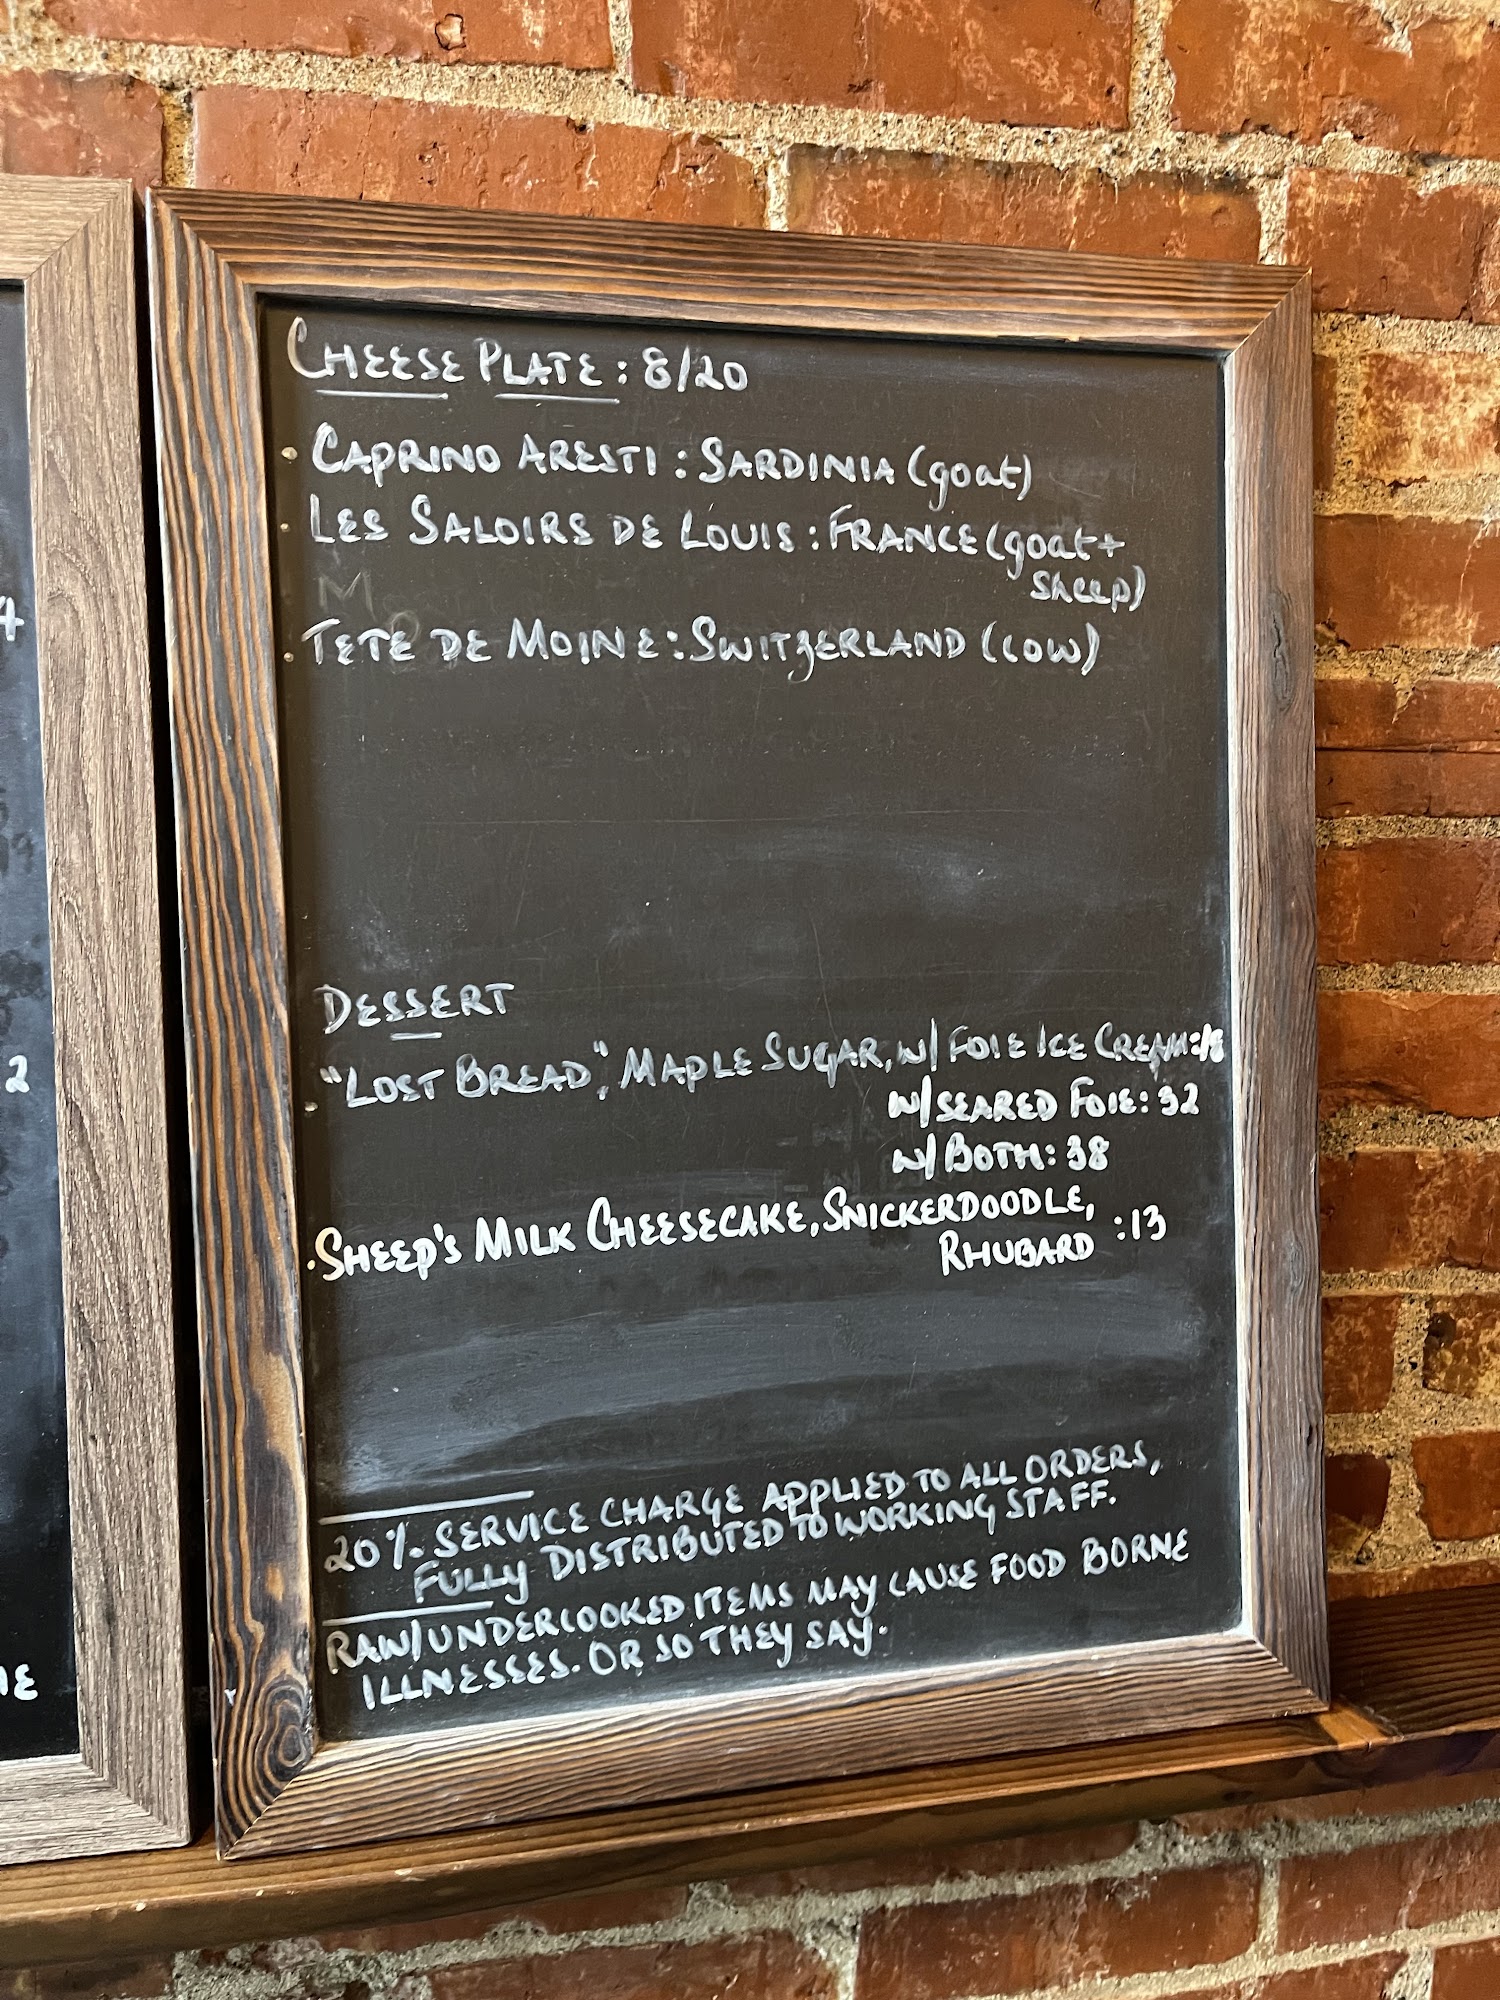 CHEESE PLATE: 8/20
• CAPRINO ARESTI: SARDINIA (goat)
• LES SALOIRS DE LOUIS: FRANCE (goat +
sheep)
• TETE DE MOINE: SWITZERLAND (cow)
DESSERT
• "LOST BREAD", MAPLE SUGAR, W/ FOIE ICE CREAM: 18
W/ SEARED FOIE: 32
W/ BOTH: 38
• SHEEP'S MILK CHEESECAKE, SNICKERDOODLE,
RHUBARD :13
20% SERVICE CHARGE APPLIED TO ALL ORDERS,
FULLY DISTRIBUTED TO WORKING STAFF.
RAW/UNDERCOOKED ITEMS MAY CAUSE FOOD BORNE
ILLNESSES. OR SO THEY SAY.
4
2